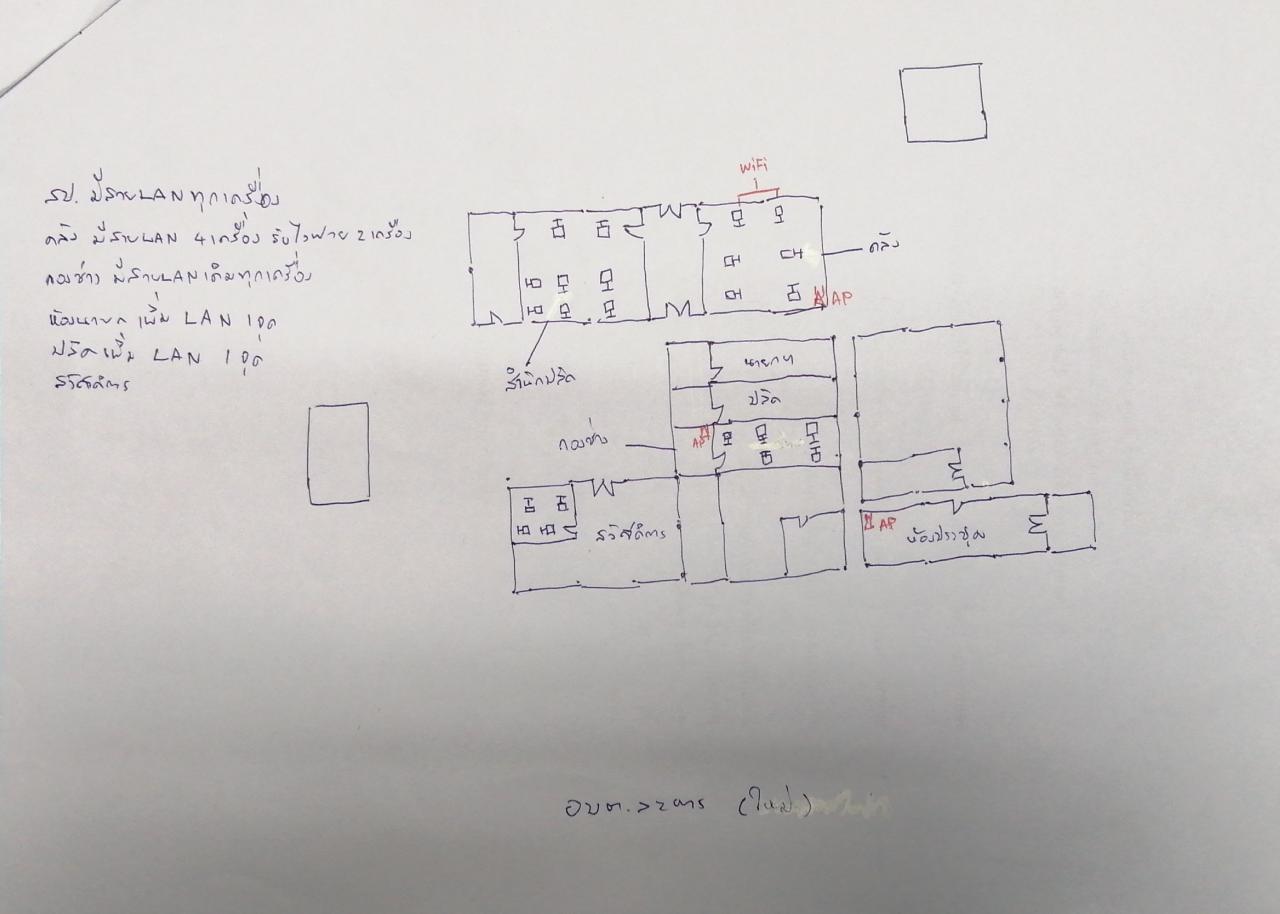 สป. มีสายLANทุกเครื่อง
คลัง มีสายLAN 4เครื่อง รับไวฟาย 2เครื่อง
กองช่าง มีสายLANเดิมทุกเครื่อง
ห้องนายก เพิ่ม LAN 1จุด
ปลัดเพิ่ม LAN 1จุด
สวัสดิการ
WiFi
คลัง
AP
สำนักปลัด
นายกฯ
ปลัด
กองช่าง
AP
สวัสดิการ
AP
ห้องประชุม
อบต. (ใหม่)